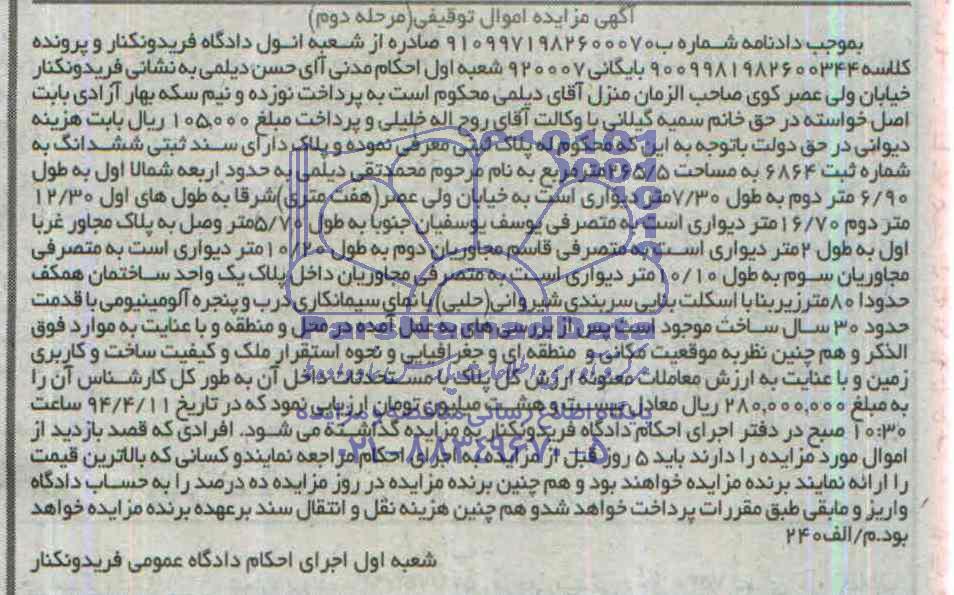 آگهی مزایده اموال توقیفی(مرحله دوم)
بموجب دادنامه شماره ب۹۱۰۹۹۷۱۹۸۲۶۰۰۰۷۰ صادره از شعبه انول دادگاه فریدونکنار و پرونده
کلاسه ۹۰۰۹۹۸۱۹۸۲۶۰۰۳۴۴ بایگانی ۹۲۰۰۰۷ شعبه اول احکام مدنی آای حسن دیلمی به نشانی فریدونکنار
خیابان ولی عصر کوی صاحب الزمان منزل آقای دیلمی محکوم است به پرداخت نوزده و نیم سکه بهار آزادی بابت
اصل خواسته در حق خانم سمیه گیلانی با وکالت آقای روح اله خلیلی و پرداخت مبلغ ۱۰۵,۰۰۰ ریال بابت هزینه
دیوانی در حق دولت باتوجه به این که محکوم له پلاک ثبتی معرفی نموده و پلاک دارای سند ثبتی ششدانگ به
شماره ثبت ۶۸۶۴ به مساحت ۲۶۵/۵مترمربع به نام مرحوم محمدتقی دیلمی به حدود اربعه شمالا اول به طول
۶/۹۰ متر دوم به طول ۷/۳۰متر دیواری است به خیابان ولی عصر(هفت متری)شرقا به طول های اول ۱۲/۳۰
متر دوم ۱۶/۷۰متر دیواری است به متصرفی یوسف یوسفیان جنوبا به طول ۵/۷۰متر وصل به پلاک مجاور غربا
اول به طول ۲متر دیواری است به متصرفی قاسم مجاوریان دوم به طول ۱۰/۲۰متر دیواری است به متصرفی
مجاوریان سوم به طول ۱۰/۱۰ متر دیواری است به متصرفی مجاوریان داخل پلاک یک واحد ساختمان همکف
حدودا ۸۰مترزیربنا با اسکلت بنایی سربندی شیروانی(حلبی) با نمای سیمانکاری درب و پنجره آلومینیومی با قدمت
حدود ۳۰ سال ساخت موجود است پس از بررسی های به عمل آمده در محل و منطقه و با عنایت به موارد فوق
الذکر و هم چنین نظر به موقعیت مکانی و منطقه ای و جغرافیایی و نحوه استقرار ملک و کیفیت ساخت و کاربری
زمین و با عنایت به ارزش معاملات معنونه ارزش کل پلاک با مستحدثات داخل آن به طور کل کارشناس آن را
به مبلغ ۲۸۰,۰۰۰,۰۰۰ ریال معادل بیست و هشت میلیون تومان ارزیابی نمود که در تاریخ ۹۴/۴/۱۱ ساعت
۱۰:۳۰ صبح در دفتر اجرای احکام دادگاه فریدونکنار به مزایده گذاشته می شود. افرادی که قصد بازدید از
اموال مورد مزایده را دارند باید ۵ روز قبل از مزایده به اجرای احکام مراجعه نمایندو کسانی که بالاترین قیمت
را ارائه نمایند برنده مزایده خواهند بود و هم چنین برنده مزایده در روز مزایده ده درصد را به حساب دادگاه
واریز و مابقی طبق مقررات پرداخت خواهد شدو هم چنین هزینه نقل و انتقال سند برعهده برنده مزایده خواهد
بود.م/الف۲۴۰
شعبه اول اجرای احکام دادگاه عمومی فریدونکنار
ParsNamadData
پایگاه اطلاع رسانی مناقصه و مزایده
۰۲۱-۸۸۳۴۹۶۷۰-۵